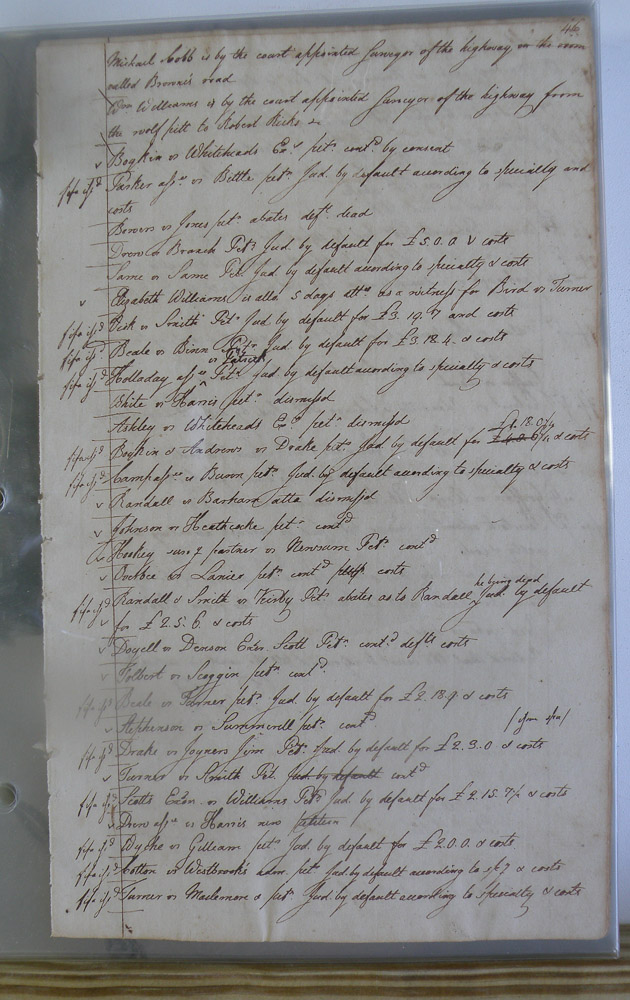 46
Michael Cobb is by the court appointed Surveyor of the highway in the room
called Browns road
Wm Williams is by the court appointed Surveyor of the highway from
the wolf pitt to Robert Ricks
v Boykin vs Whiteheads Exr petn contd by consent
fi fa issd Parker assee vs Bittle petn Jud. by default according to specialty and
costs
Bowers vs Jones petn abates deft dead
Drew vs Branch Petn Jud. by default for £5.0.0 & costs
Same vs Same Petn Jud by default according to specialty & costs
v Elizabeth Williams is alld 5 days attce as a witness for Bird vs Turner
fi fa issd Vick vs Smith Petn Jud by default for £3.19.7 and costs
fi fa issd Beale vs Binn Petn Jud by default for £3.18.4 & costs
vs Patrick
fi fa issd Holladay assee Petn Jud. by default according to specialty & costs
White vs Harris petn dismissed
Ashley vs Whiteheads Exr petn dismissd
£1.18.0½
fi fa issd Boykin & Andrews vs Drake petn Jud by default for & costs
fi fa issd Camp assee vs Bunn petn Jud. by default according to specialty & costs
v Randall vs Barham atta dismissd
v Johnson vs Heathcocke petn contd
v Hookey surv g partner vs Newsum Petn contd
v vs Lanier petn contd costs
he being dead
fi fa issd Randall & Smith vs Kirby Petn abates as to Randall Jud. by default
v for £2.5.6. & costs
v Doyell vs Denson Exrs. Scott Petn contd defts costs
v Tolbert vs Scoggin petn contd
fi fa issd Beale vs Turner petn Jud. by default for £2.18.9 & costs
v Stephenson vs Summerell petn contd
fi fa issd Drake vs Joyners Jim Petn Jud. by default for £2.3.0 & costs
v Turner vs Smith Pet. Jud. by default contd
fi fa issd Scotts Exon. vs Williams Petn Jud. by default for £2.15.7½ & costs
v Drew assee vs Harris new petition
fi fa issd Wyche vs Gilliam petn Jud. by default for £2.0.0. & costs
fi fa issd Cotton vs Westbrook's adm. petn Jud by default according to spty & costs
fi fa issd Turner vs Maclemore & petn Jud. by default according to specialty & costs